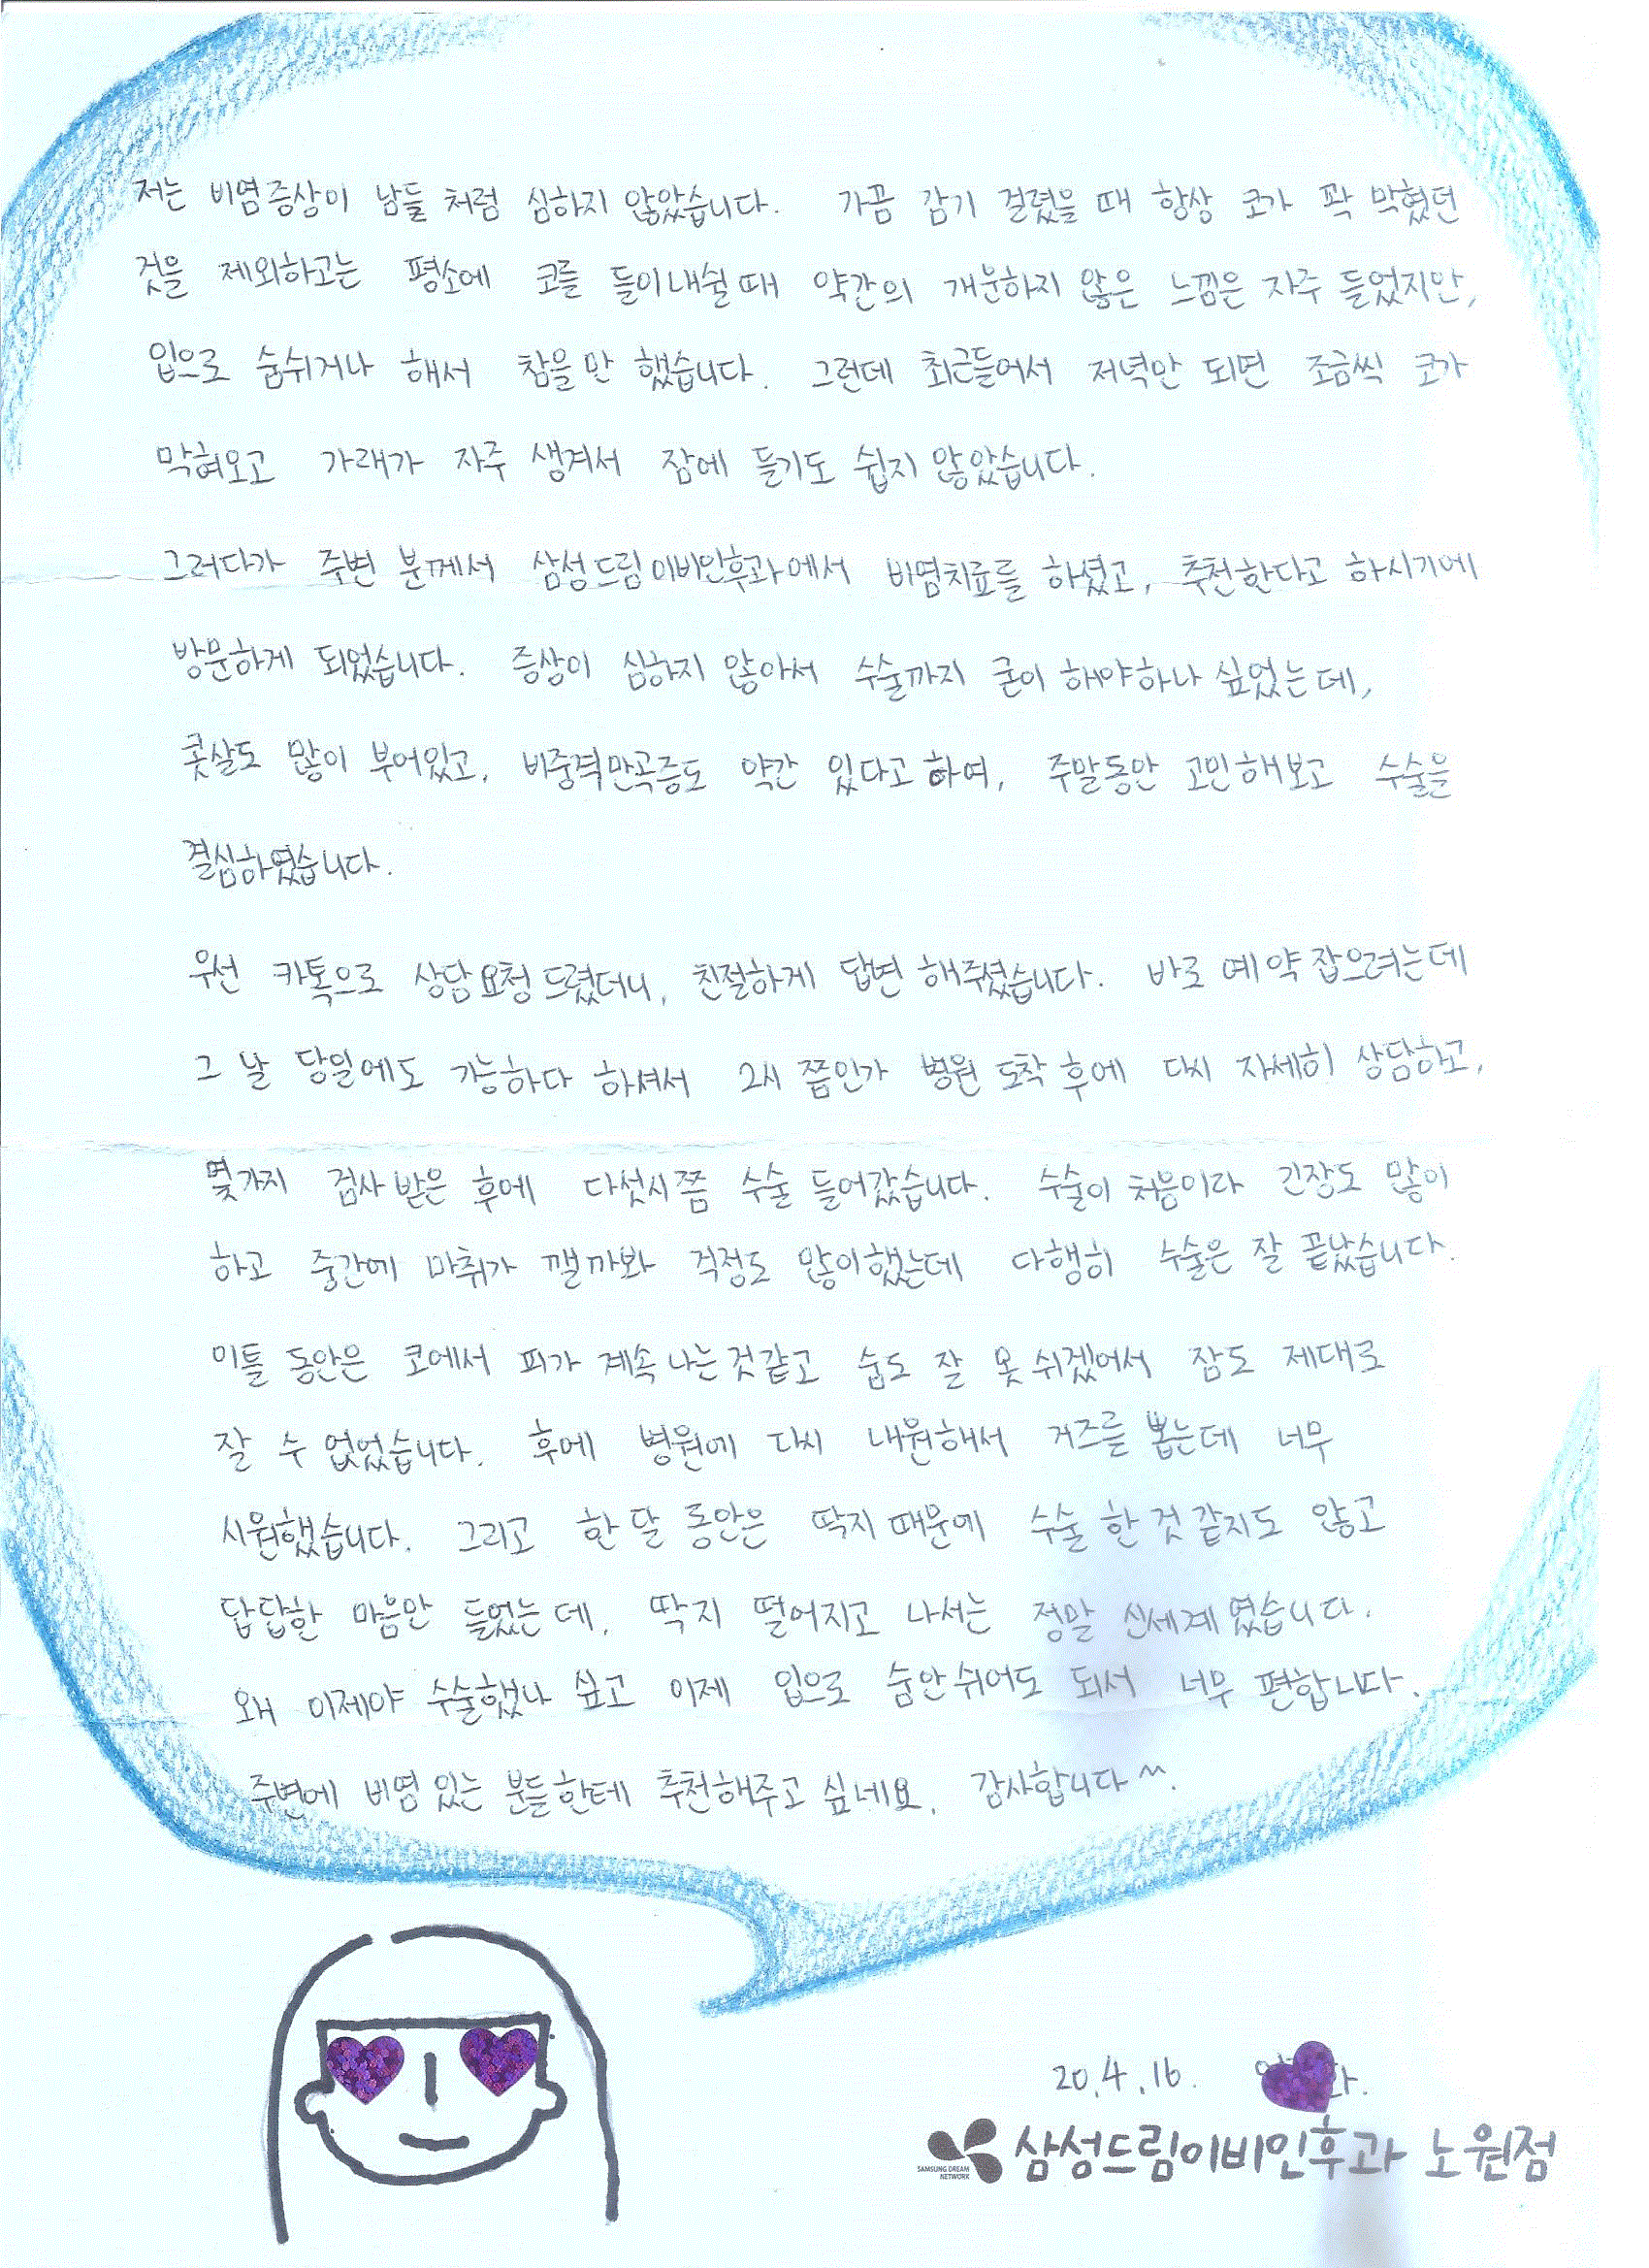 저는 비염증상이 남들 처럼 심하지 않았습니다. 가끔 감기 걸렸을 때 항상 코가 꽉 막혔던
것을 제외하고는 평소에 코를 들이내쉴 때 약간의 개운하지 않은 느낌은 자주 들었지만,
입으로 숨쉬거나 해서 참을만 했습니다. 그런데 최근들어서 저녁만 되면 조금씩 코가
막혀오고 가래가 자주 생겨서 잠에 들기도 쉽지 않았습니다.
그러다가 주변 분께서 삼성드림이비인후과에서 비염치료를 하셨고, 추천한다고 하시기에
방문하게 되었습니다. 증상이 심하지 않아서 수술까지 굳이 해야하나 싶었는데,
콧살도 많이 부어있고, 비중격만곡증도 약간 있다고 하여, 주말동안 고민해보고 수술을
결심하였습니다.
우선 카톡으로 상담요청 드렸더니, 친절하게 답변 해주셨습니다. 바로 예약 잡으려는데
그 날 당일에도 가능하다 하셔서 2시 쯤인가 병원 도착 후에 다시 자세히 상담하고,
몇가지 검사 받은 후에 다섯시쯤 수술 들어갔습니다. 수술이 처음이라 긴장도 많이
하고 중간에 마취가 깰까봐 걱정도 많이했는데 다행히 수술은 잘 끝났습니다.
이틀 동안은 코에서 피가 계속 나는것같고 숨도 잘 못 쉬겠어서 잠도 제대로
잘 수 없었습니다. 후에 병원에 다시 내원해서 거즈를 뽑는데 너무
시원했습니다. 그리고 한 달 동안은 딱지 때문에 수술 한 것 같지도 않고
답답한 마음만 들었는데, 딱지 떨어지고 나서는 정말 신세계 였습니다.
왜 이제야 수술했나 싶고 이제 입으로 숨안쉬어도 되서 너무 편합니다.
주변에 비염 있는 분들한테 추천해주고 싶네요. 감사합니다^^.
20.4.16.
SAMSUNG DREAM NETWORK 삼성드림이비인후과 노원점